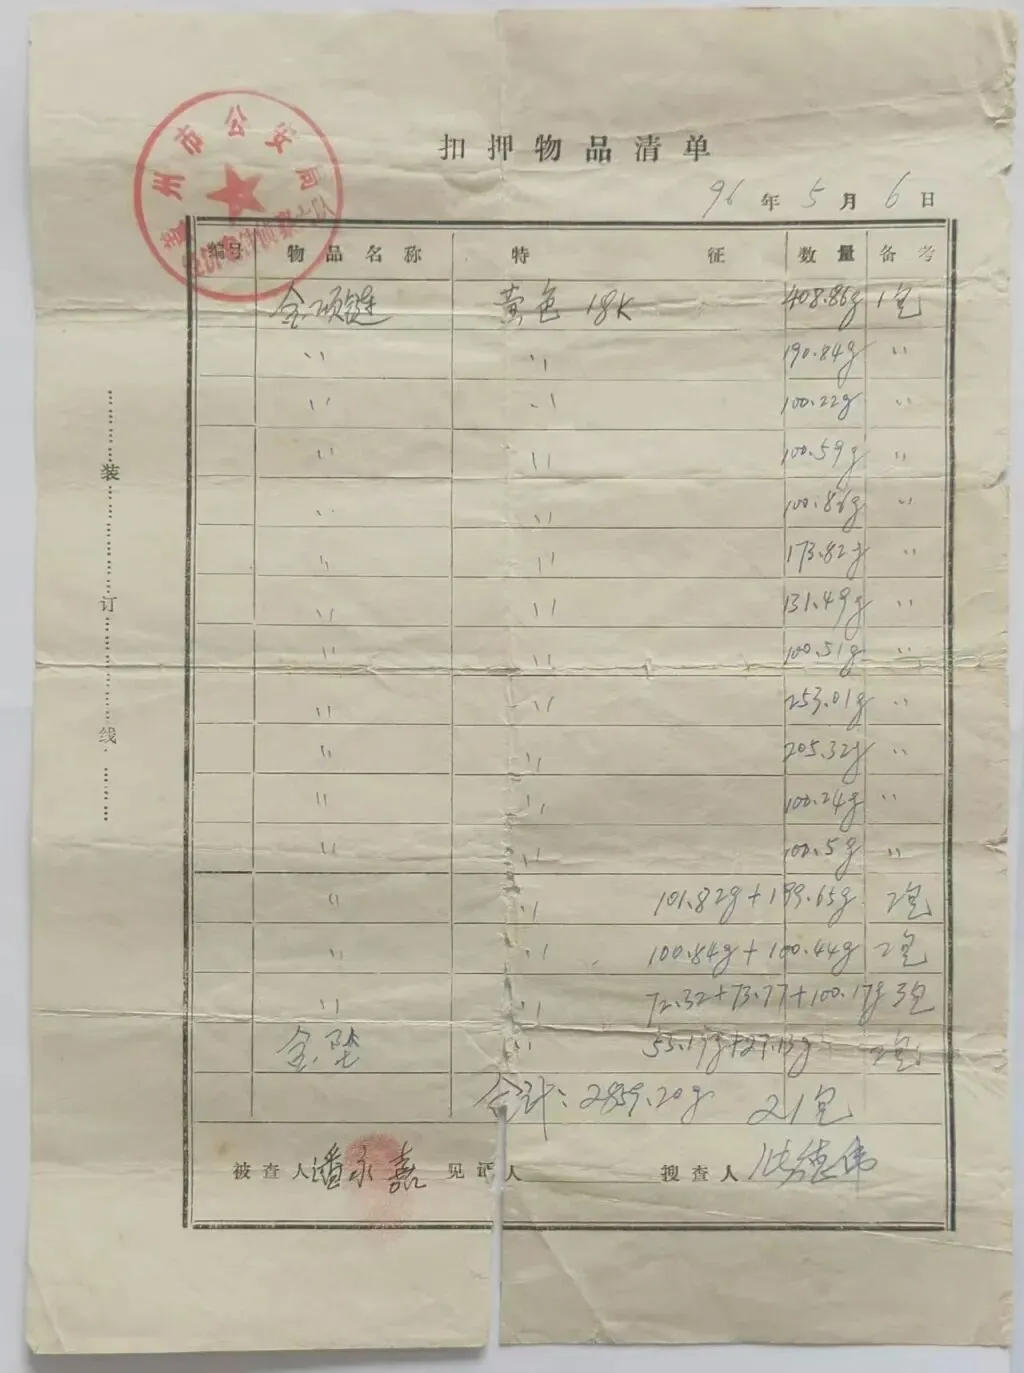 扣押物品清单
96年5月6日
州市公安局
编号 物品名称 特征 数量 备考
金项链 黄色 18K 408.86g 1包
〃 〃 190.84g 〃
〃 〃 100.22g 〃
〃 〃 100.59g 〃
〃 〃 100.86g 〃
〃 〃 173.82g 〃
〃 〃 131.49g 〃
〃 〃 100.51g 〃
〃 〃 253.01g 〃
〃 〃 205.32g 〃
〃 〃 100.24g 〃
〃 〃 100.5g 〃
〃 〃 101.82g+199.65g 2包
〃 〃 100.84g+100.44g 2包
〃 〃 72.32+73.77+100.17g 3包
金坠 〃 2包
合计:2859.20g 21包
被查人 潘永嘉 见证人 搜查人 德伟
装订线